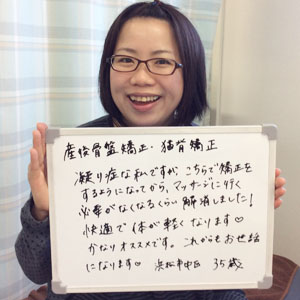 産後骨盤矯正・猫背矯正
凝り症な私ですが、こちらで矯正を
するようになってから、マッサージに行く
必要がなくなるくらい解消しました!
快適で体が軽くなります♡
かなりオススメです。これからもお世話
になります♡ 浜松市中区 35歳